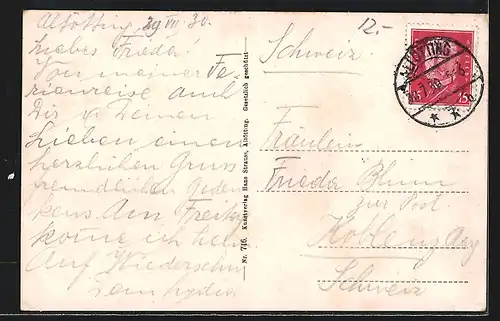 Altötting 29 VII 30.
Liebes Frieda.
Von meiner Fe-
rienreise auch
Dir u Deinen
Lieben einen
herzlichen Gruss
freundlichen Geden
kens. Am Freitag
kome ich heim
Auf Wiedersehn
Nr. 716. Kunstverlag Hans Strauss, Altötting. Gesetzlich geschützt
12.-
Schweiz.
ALTÖTTING
15
Fräulein
Frieda Blum
zur Post
Koblenz Arg
Schweiz